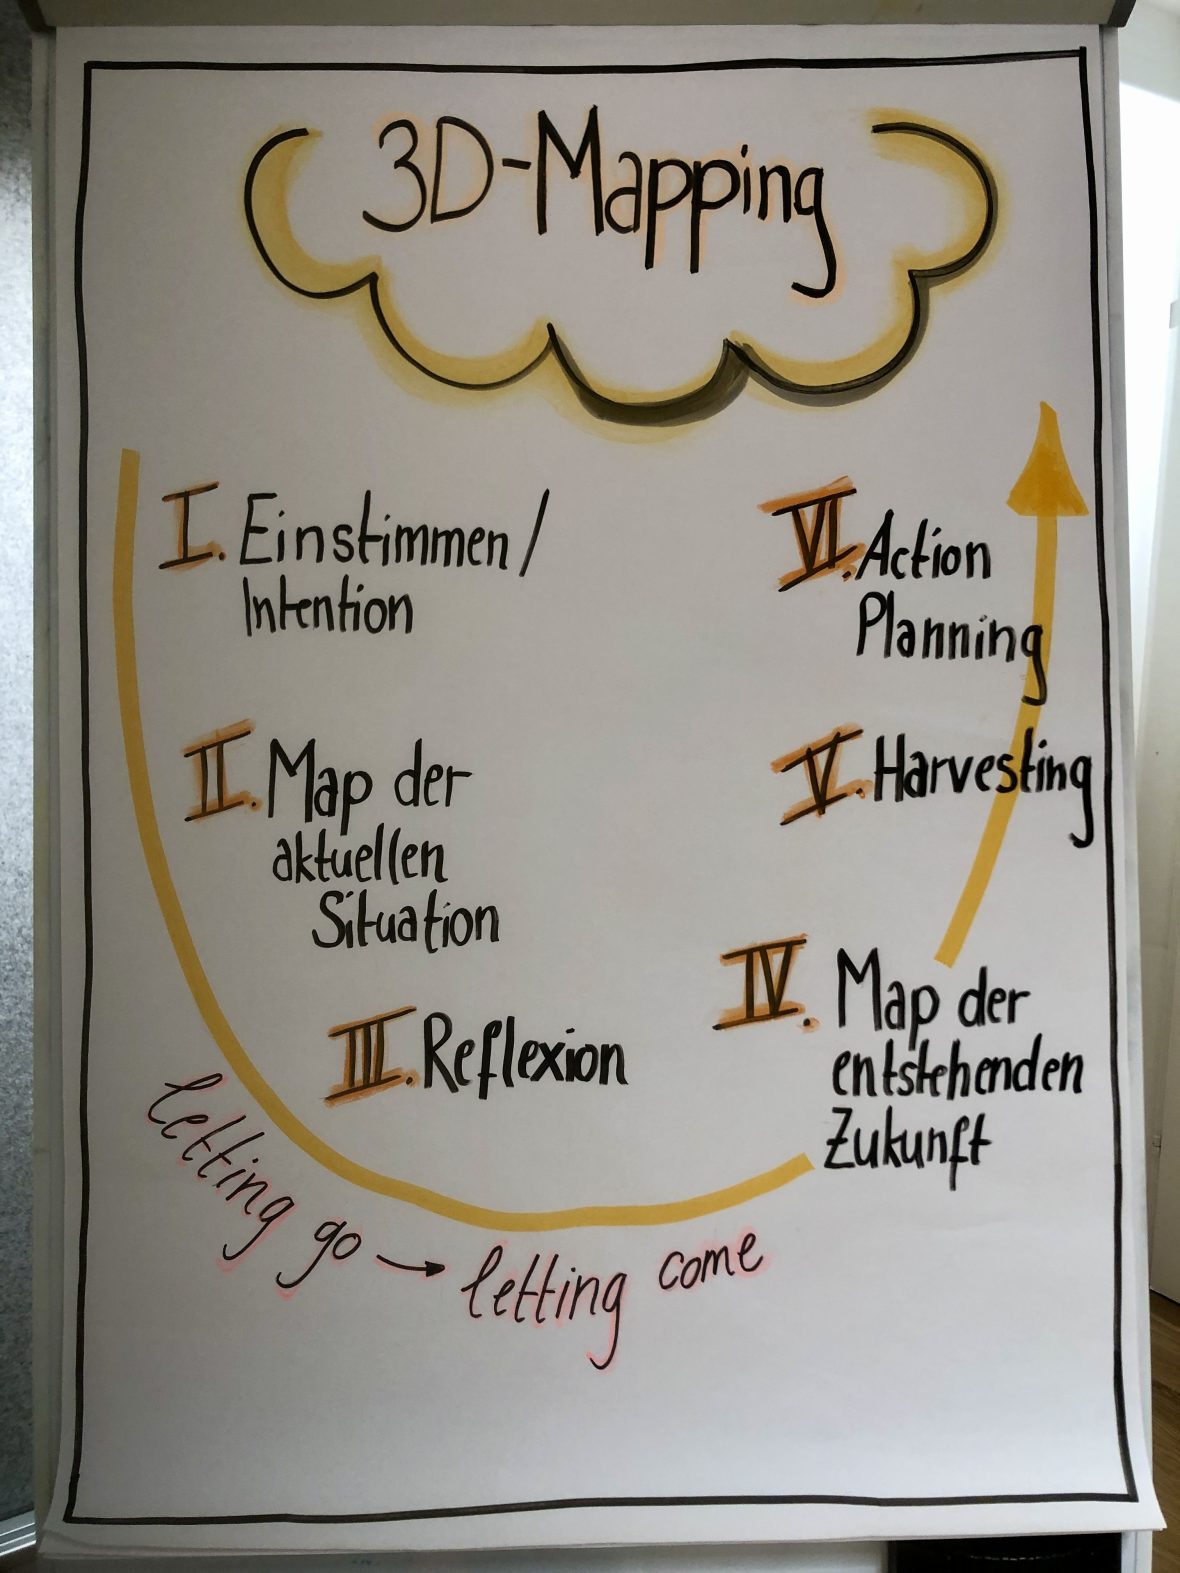 3D-Mapping
I. Einstimmen /
Intention
II. Map der
aktuellen
Situation
III. Reflexion
letting go → letting come
IV. Map der
entstehenden
Zukunft
V. Harvesting
VI. Action
Planning